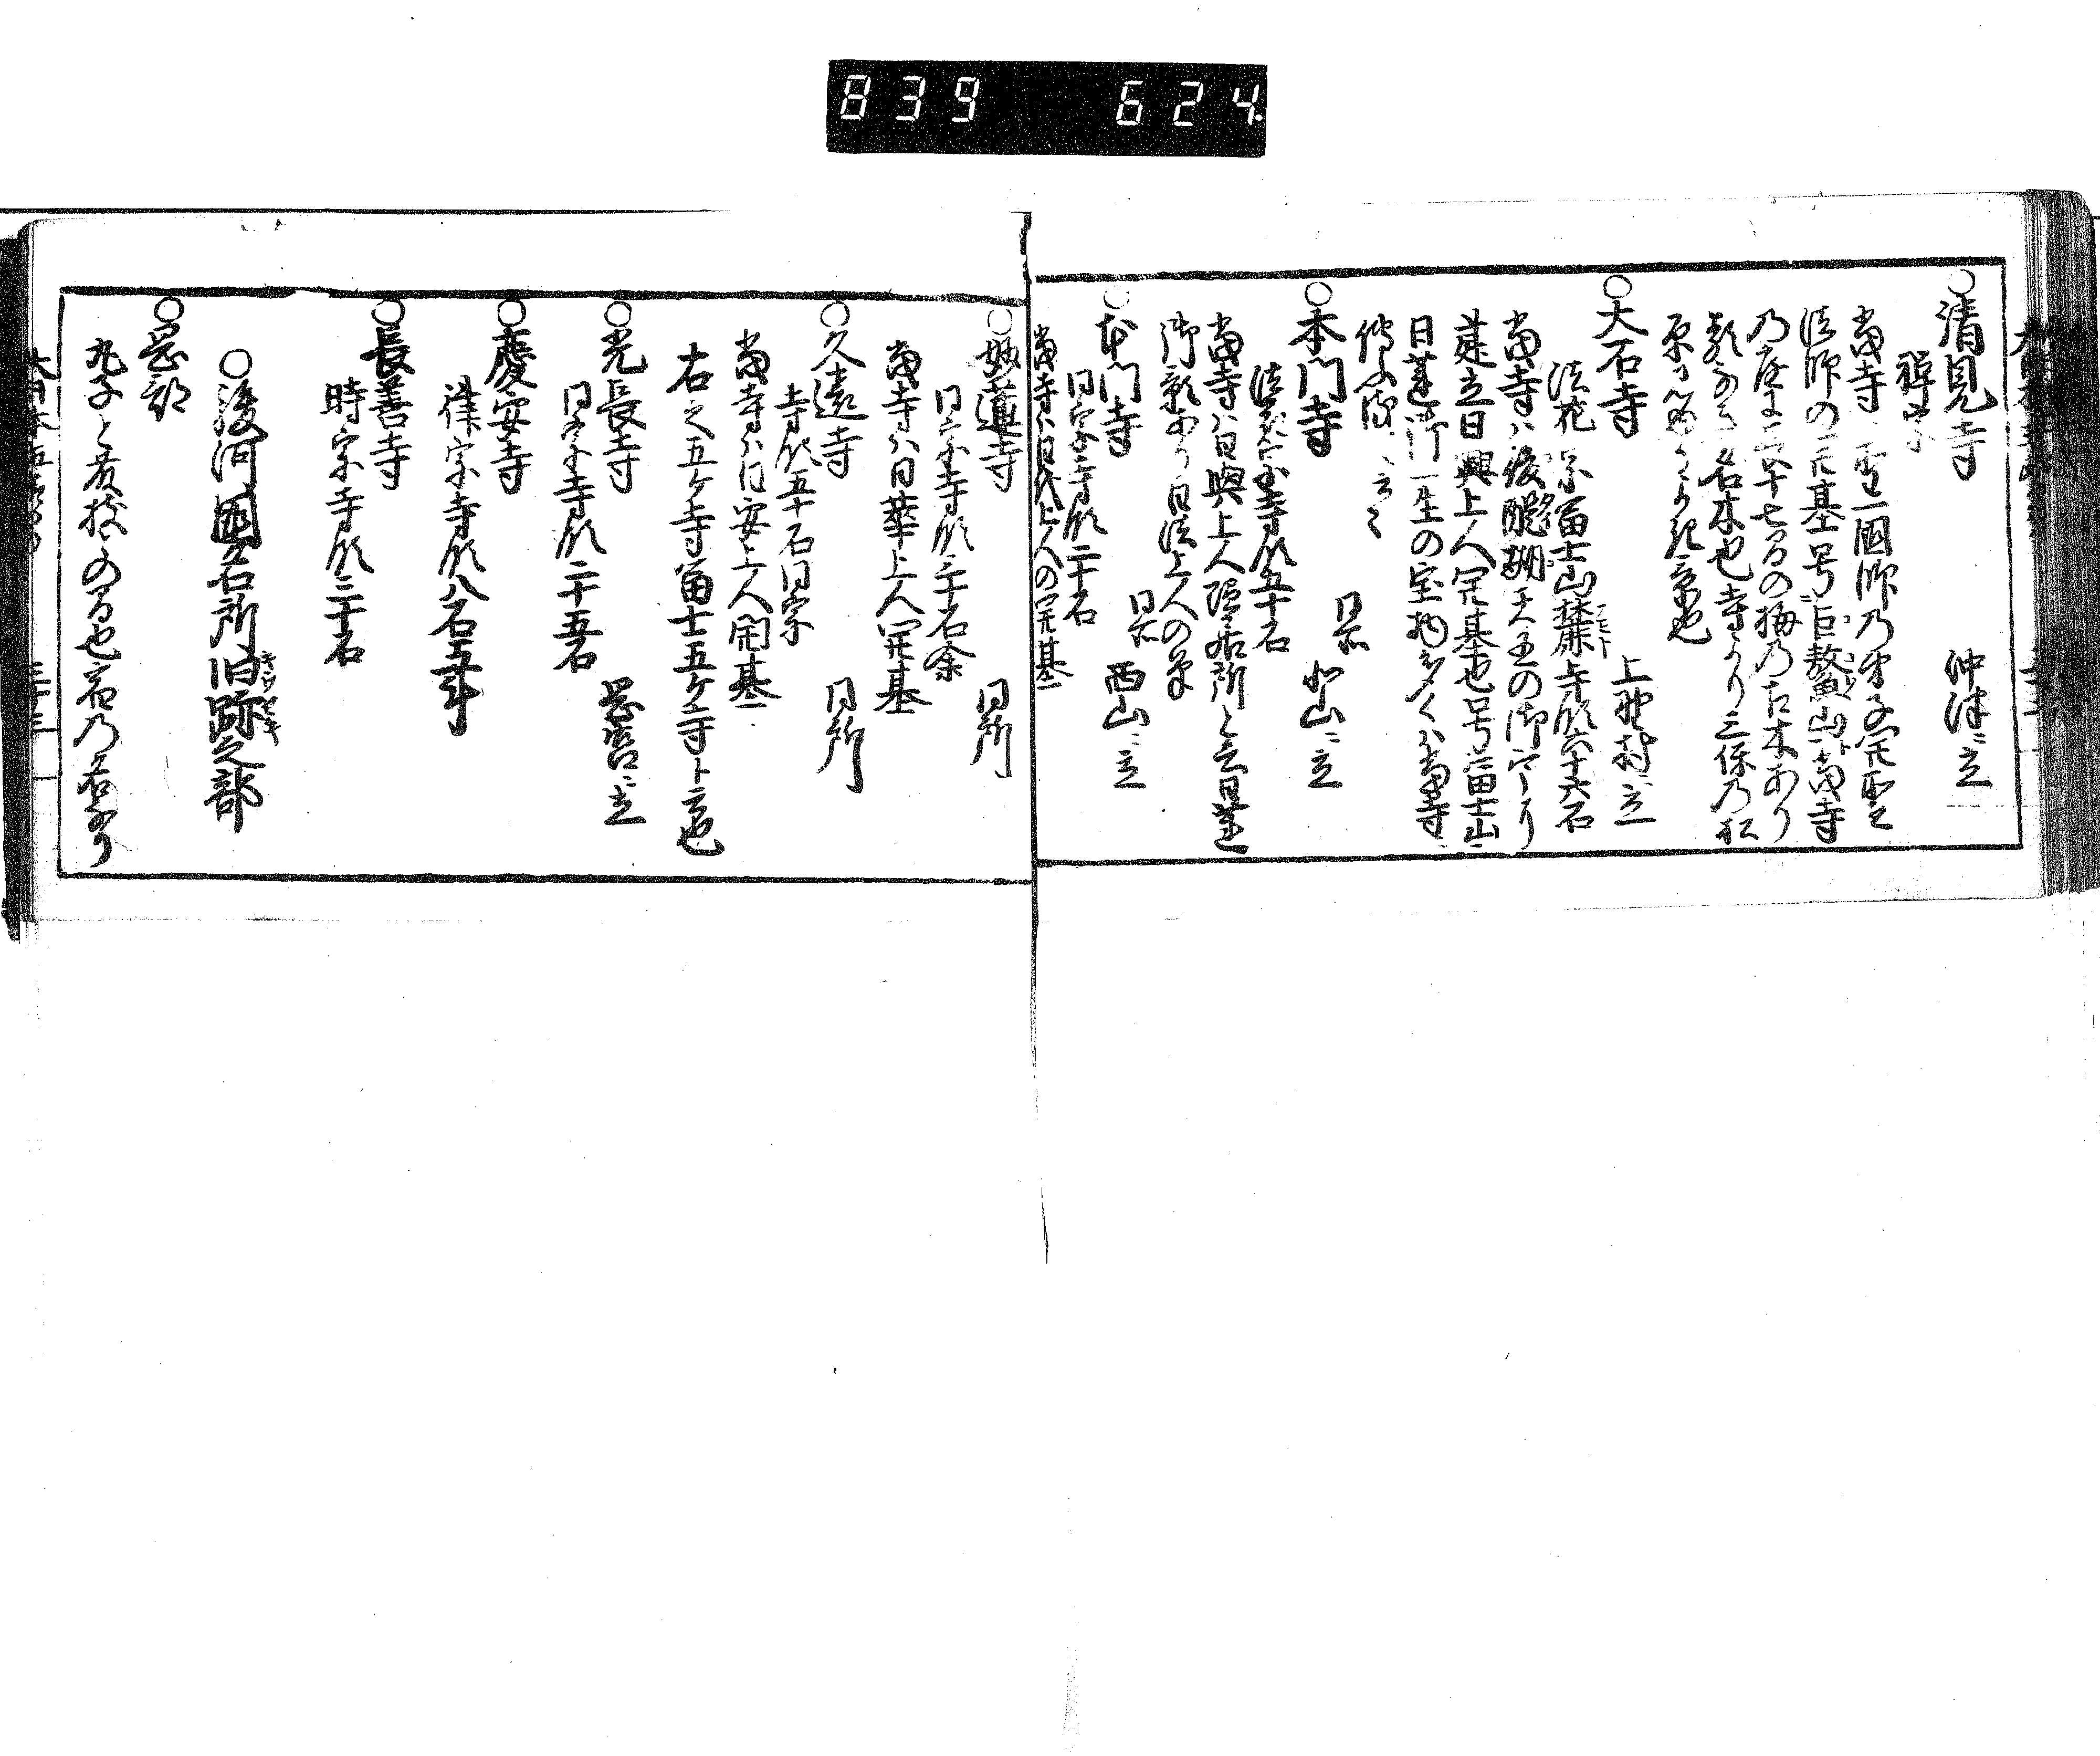 839 624
○清見寺 沖津ニ立
禅宗
当寺ハ聖一国師乃弟子開聖
法師の開基号巨鼇山当寺
乃庭に二十七間の梅乃古木あり
名木也寺より三保乃松
原
○大石寺 上野村ニ立
法花宗富士山麓寺領六十六石
当寺ハ後醍醐天王の御
建立日興上人開基也号富士山
日蓮御一生の宝物多くハ当寺
伝ふ ニ云々
○本門寺 同所北山ニ立
法花宗寺領五十石
当寺ハ日興上人隠居所と云日蓮
御影あり日法上人の作
○本門寺 同所西山ニ立
同宗寺領二十石
当寺ハ日代上人の開基
○妙蓮寺 同所
同宗寺領二十石余
当寺ハ日華上人開基
○久遠寺 同所
寺領五十石同宗
当寺ハ日安上人開基
右之五ケ寺富士五ケ寺ト云也
○光長寺 岡宮ニ立
同宗寺領二十五石
○慶安寺
律宗寺領八石五斗
○長善寺
時宗寺領三十石
○駿河國名所旧跡之部
○岡部
丸子と藤枝の間也宿乃名なり